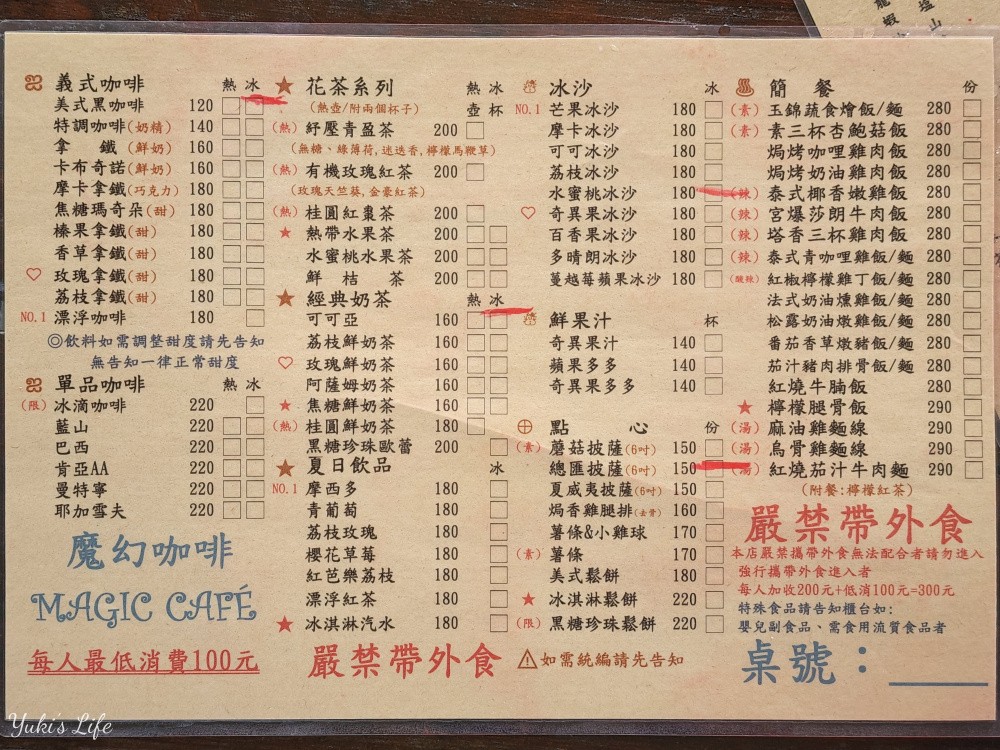 義式咖啡 熱 冰
美式黑咖啡 120
特調咖啡(奶精) 140
拿 鐵(鮮奶) 160
卡布奇諾(鮮奶) 160
摩卡拿鐵(巧克力) 180
焦糖瑪奇朵(甜) 180
榛果拿鐵(甜) 180
香草拿鐵(甜) 180
♡ 玫瑰拿鐵(甜) 180
荔枝拿鐵(甜) 180
NO.1 漂浮咖啡 180
◎飲料如需調整甜度請先告知
無告知一律正常甜度
單品咖啡 熱 冰
(限) 冰滴咖啡 220
藍山 220
巴西 220
肯亞AA 220
曼特寧 220
耶加雪夫 220
魔幻咖啡
MAGIC CAFÉ
每人最低消費100元
★ 花茶系列 熱 冰
(熱壺/附兩個杯子) 壺 杯
(熱) 紓壓青盈茶 200
(無糖、綠薄荷,迷迭香,檸檬馬鞭草)
(熱) 有機玫瑰紅茶 200
(玫瑰天竺葵,金豪紅茶)
(熱) 桂圓紅棗茶 200
★ 熱帶水果茶 200
水蜜桃水果茶 200
鮮 桔 茶 200
★ 經典奶茶 熱 冰
可可亞 160
荔枝鮮奶茶 160
♡ 玫瑰鮮奶茶 160
阿薩姆奶茶 160
★ 焦糖鮮奶茶 160
(熱) 桂圓鮮奶茶 180
黑糖珍珠歐蕾 200
★ 夏日飲品 冰
NO.1 摩西多 180
青葡萄 180
荔枝玫瑰 180
櫻花草莓 180
紅芭樂荔枝 180
漂浮紅茶 180
★ 冰淇淋汽水 180
嚴禁帶外食
冰沙 冰
NO.1 芒果冰沙 180
摩卡冰沙 180
可可冰沙 180
荔枝冰沙 180
水蜜桃冰沙 180
♡ 奇異果冰沙 180
百香果冰沙 180
多晴朗冰沙 180
蔓越莓蘋果冰沙 180
鮮果汁 杯
奇異果汁 140
蘋果多多 140
奇異果多多 140
點 心 份
(素) 蘑菇披薩(6吋) 150
總匯披薩(6吋) 150
夏威夷披薩(6吋) 150
焗香雞腿排(去骨) 160
薯條&小雞球 170
(素) 薯條 170
美式鬆餅 180
★ 冰淇淋鬆餅 220
(限) 黑糖珍珠鬆餅 220
⚠如需統編請先告知
簡 餐 份
(素) 玉錦蔬食燴飯/麵 280
(素) 素三杯杏鮑菇飯 280
焗烤咖哩雞肉飯 280
焗烤奶油雞肉飯 280
(辣) 泰式椰香嫩雞飯 280
(辣) 宮爆莎朗牛肉飯 280
(辣) 塔香三杯雞肉飯 280
(辣) 泰式青咖哩雞飯/麵 280
(酸辣) 紅椒檸檬雞丁飯/麵 280
法式奶油燻雞飯/麵 280
松露奶油燉雞飯/麵 280
番茄香草燉豬飯/麵 280
茄汁豬肉排骨飯/麵 280
紅燒牛腩飯 280
★ 檸檬腿骨飯 290
(湯) 麻油雞麵線 290
(湯) 烏骨雞麵線 290
(湯) 紅燒茄汁牛肉麵 290
(附餐:檸檬紅茶)
嚴禁帶外食
本店嚴禁攜帶外食無法配合者請勿進入
強行攜帶外食進入者
每人加收200元+低消100元=300元
特殊食品請告知櫃台如:
嬰兒副食品、需食用流質食品者
桌號:
龍蝦
塩山
Yuki's Life